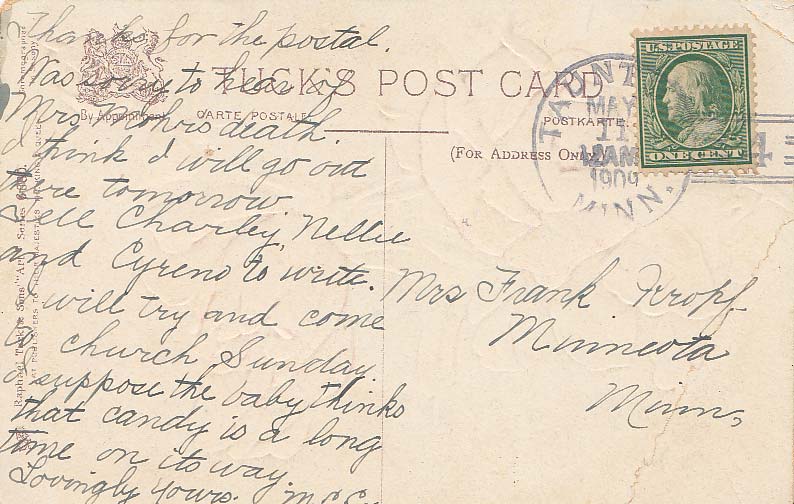 Thanks for the postal.
Was sorry to hear of
Mrs Mohrs death.
I think I will go out
there tomorrow
Tell Charley, Nellie
and Cyreno to write.
I will try and come
to church Sunday.
I suppose the baby thinks
that candy is a long
time on its way.
Lovingly yours. M.C.C.
TUCK'S POST CARD
By Appointment
CARTE POSTALE
POSTKARTE
(FOR ADDRESS ONLY)
Raphael Tuck & Sons' "Art" Series
U.S. POSTAGE
ONE CENT
TAUNTON
MAY
11
AM
1909
MINN.
4
Mrs Frank Kropf
Minneota
Minn,